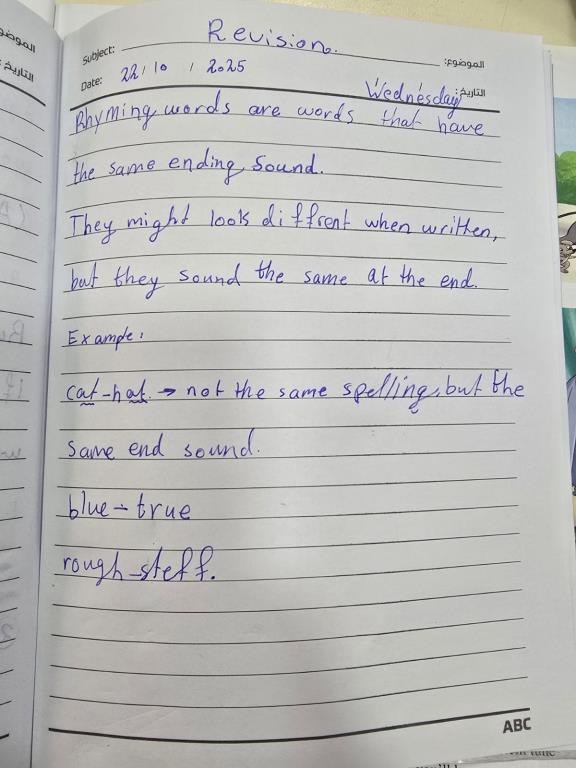 Revision.
Subject: الموضوع:
Date: 22/10/2025 التاريخ:
Wednesday
Rhyming words are words that have
the same ending sound.
They might look diffrent when written,
but they sound the same at the end.
Example:
cat-hat. → not the same spelling, but the
same end sound.
blue - true
rough - steff.
ABC
الموضوع
التاريخ: